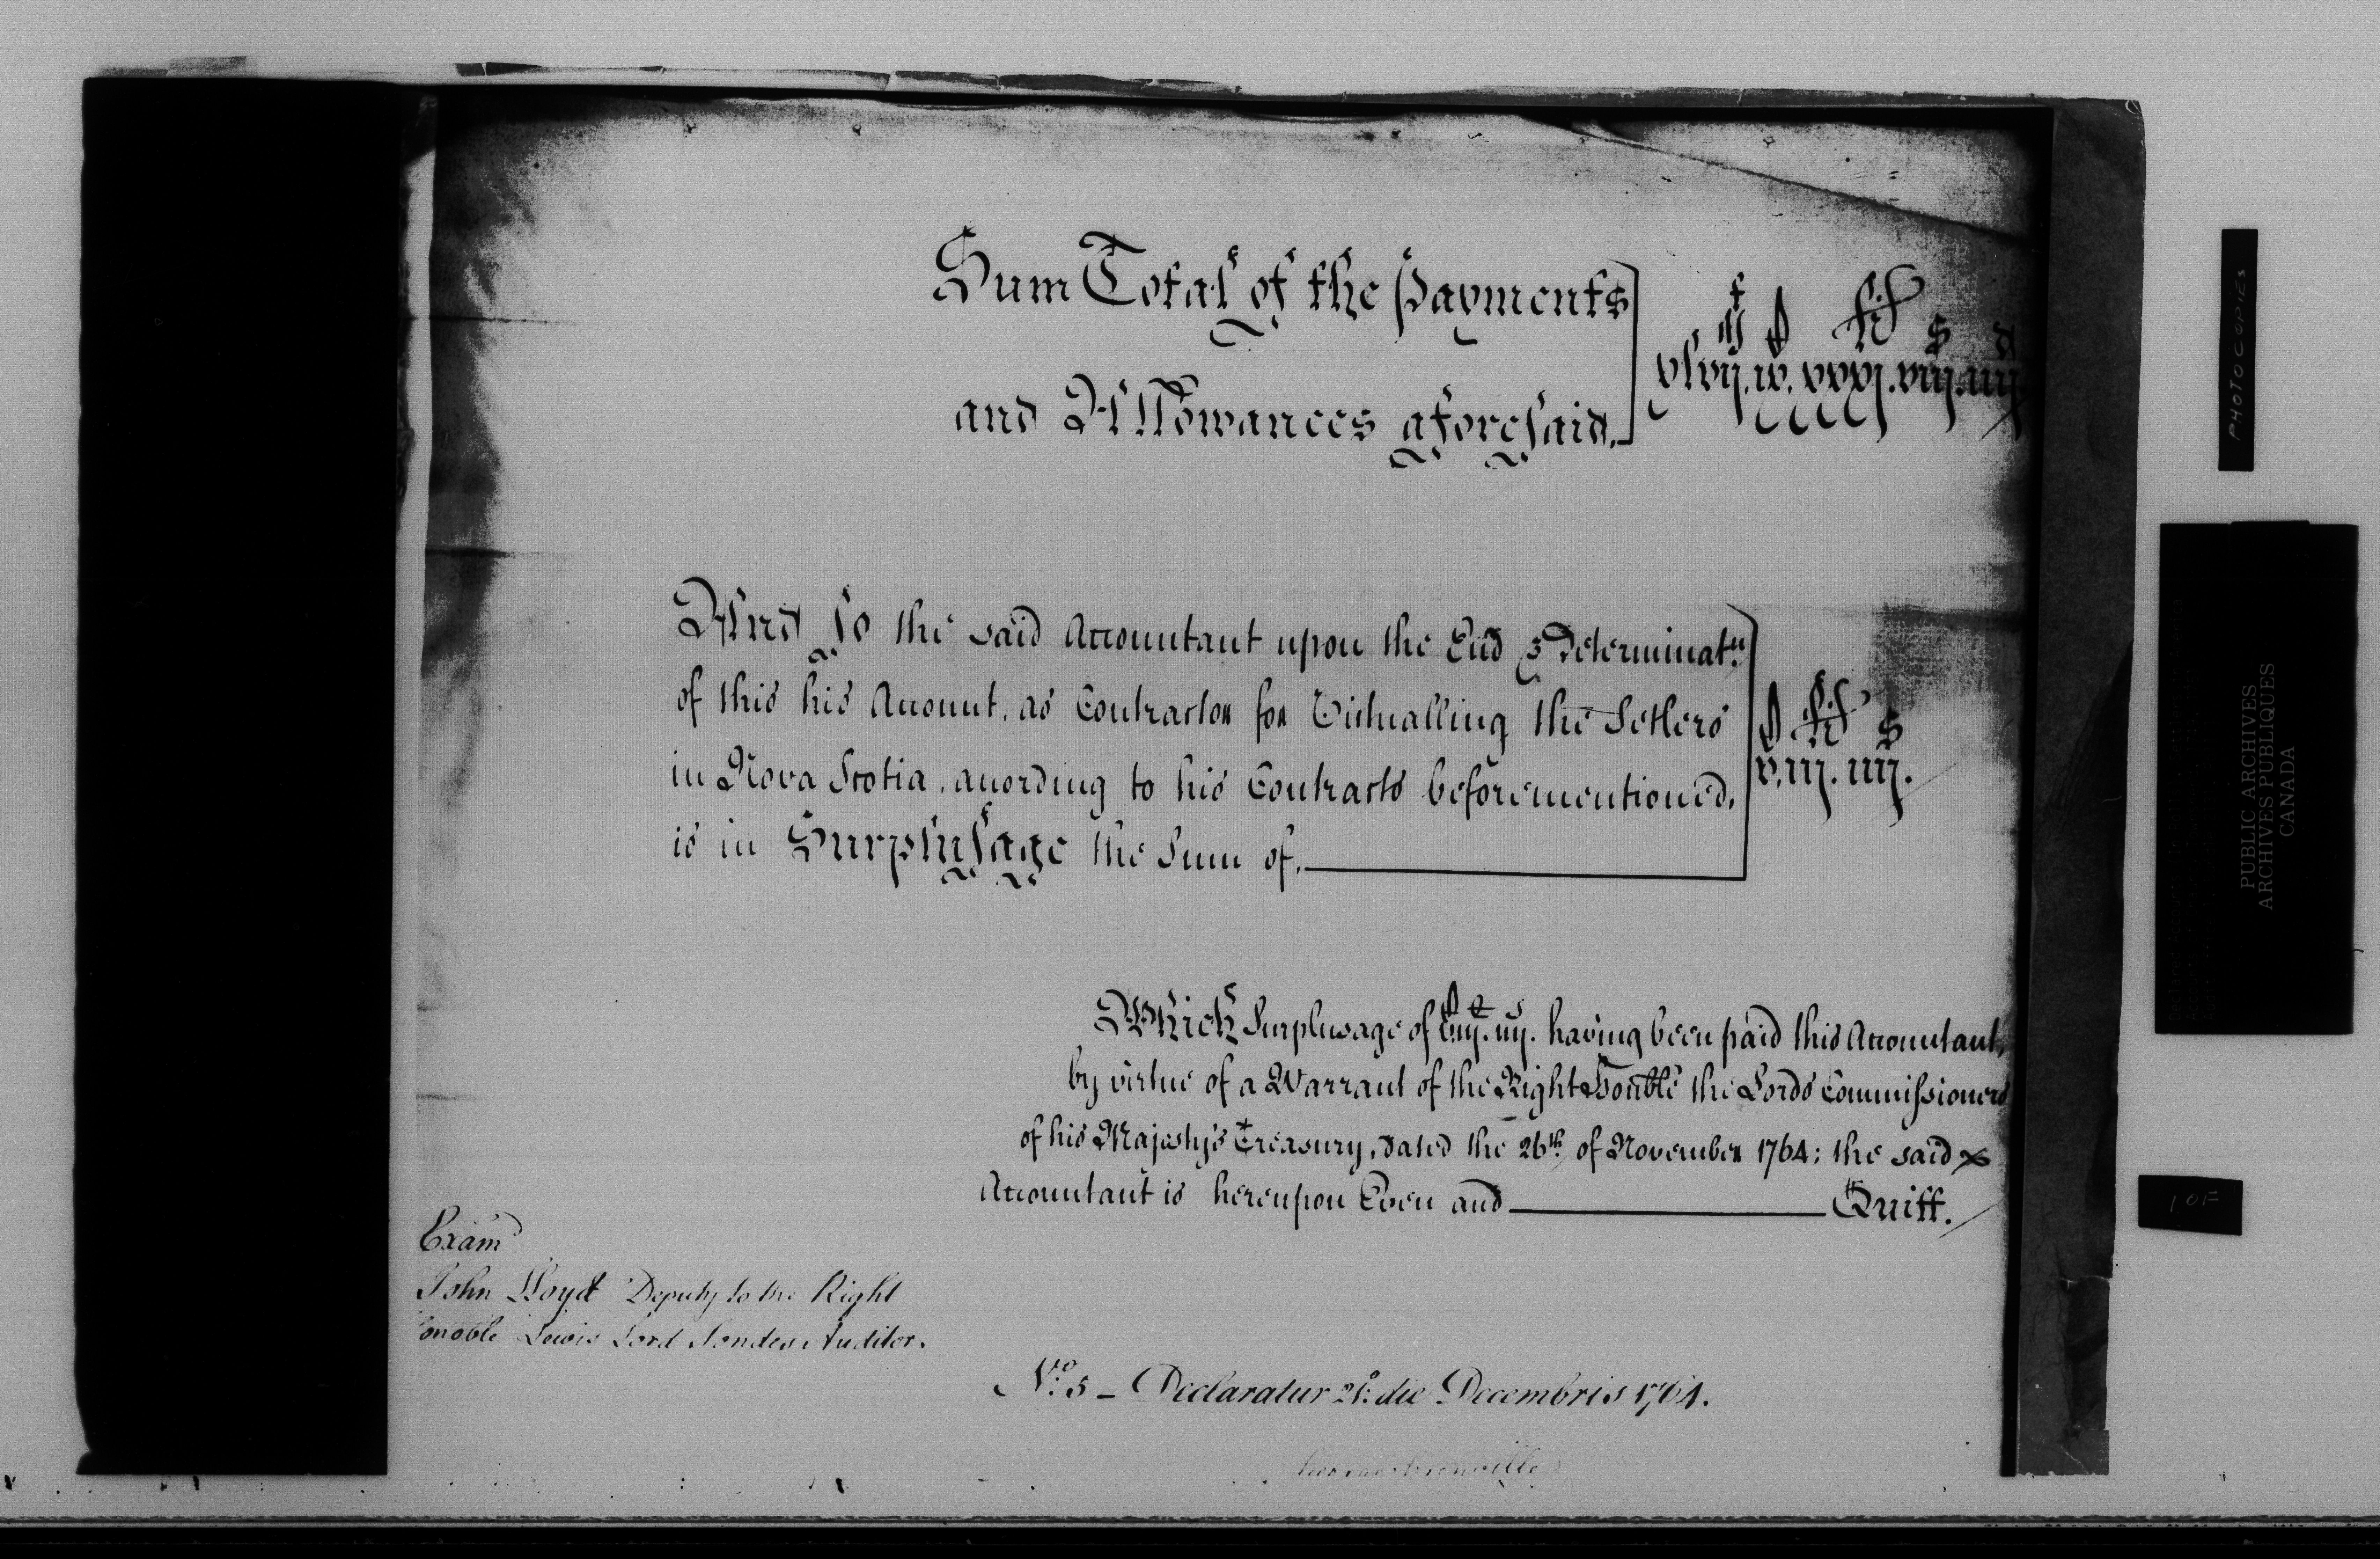 Sum Total of the Payments
and Allowances aforesaid.
xlvij. ix. xxxj. viij. iiij
And so the said Accountant upon the End & Determinatn.
of this his Account, as Contractor for Victualling the Setlers
in Nova Scotia, according to his Contracts beforementioned,
is in Surplusage the Sum of.
v. iij. iiij.
Which Surplusage of v. iij. iiij. having been paid this Accountant,
by virtue of a Warrant of the Right Honble the Lords Commissioners
of his Majesty's Treasury, dated the 26th of November 1764; the said
Accountant is hereupon Even and Quitt.
Examd
John Lloyd Deputy to the Right
onoble Lewis Lord Sondes Auditor.
No. 5 - Declaratur 21o die Decembris 1764.
PHOTOCOPIES
PUBLIC ARCHIVES
ARCHIVES PUBLIQUES
CANADA
1 OF